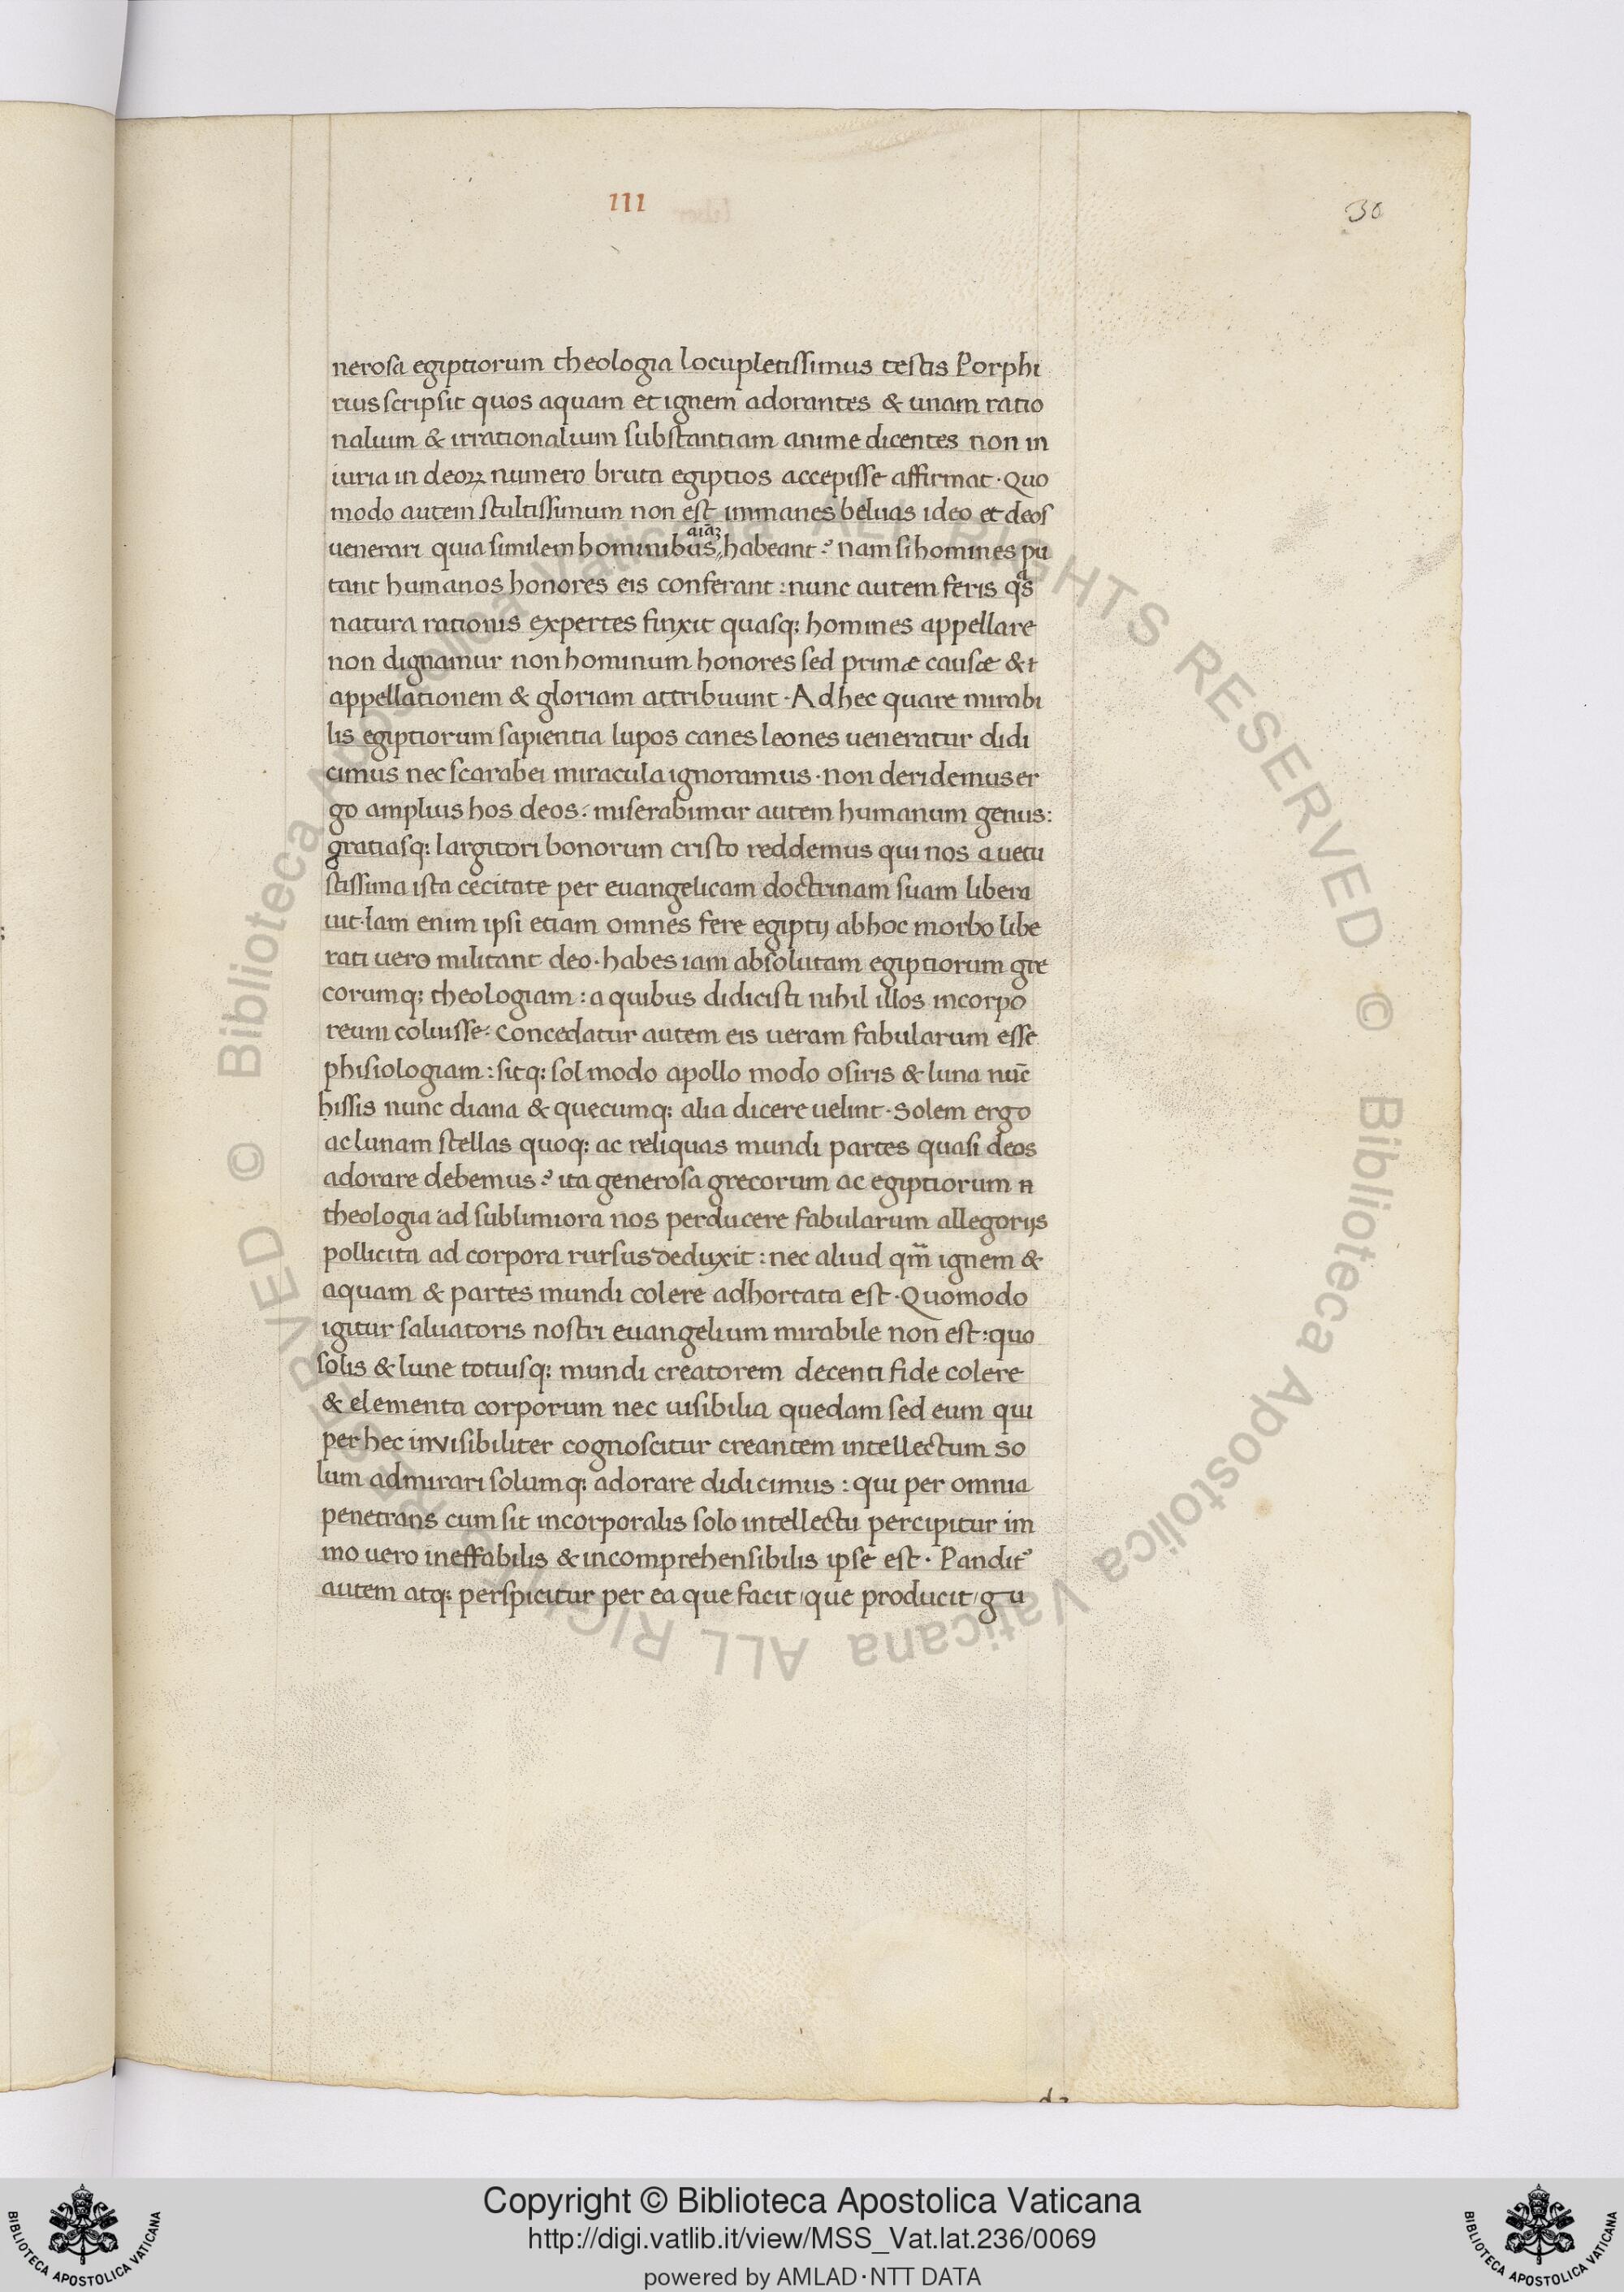 III
30
nerosa egiptiorum theologia locupletissimus testis Porphi
rius scripsit quos aquam et ignem adorantes & unam ratio
nalium & irrationalium substantiam anime dicentes non in
iuria in deoꝝ numero bruta egiptios accepisse affirmat · Quo
modo autem stultissimum non est immanes beluas ideo et deos
aiāꝫ
uenerari quia similem hominibus, habeant? nam si homines pu
tant humanos honores eis conferant : nunc autem feris qͣs
natura rationis expertes finxit quasq; homines appellare
non dignamur non hominum honores sed primæ causæ &t
appellationem & gloriam attribuunt · Ad hec quare mirabi
lis egiptiorum sapientia lupos canes leones ueneratur didi
cimus nec scarabei miracula ignoramus · non deridemus er
go amplius hos deos : miserabimur autem humanum genus :
gratiasq; largitori bonorum cristo reddemus qui nos a uetu
stissima ista cecitate per euangelicam doctrinam suam libera
uit · Iam enim ipsi etiam omnes fere egiptij ab hoc morbo libe
rati uero militant deo · habes iam absolutam egiptiorum gre
corumq; theologiam : a quibus didicisti nihil illos incorpo
reum coluisse : Concedatur autem eis ueram fabularum esse
phisiologiam : sitq; sol modo apollo modo osiris & luna nūc
hissis nunc diana & quecumq; alia dicere uelint · Solem ergo
ac lunam stellas quoq; ac reliquas mundi partes quasi deos
adorare debemus? ita generosa grecorum ac egiptiorum n
theologia ad sublimiora nos perducere fabularum allegorijs
pollicita ad corpora rursus deduxit : nec aliud qm̄ ignem &
aquam & partes mundi colere adhortata est · Quomodo
igitur saluatoris nostri euangelium mirabile non est : quo
solis & lune totiusq; mundi creatorem decenti fide colere
& elementa corporum nec uisibilia quedam sed eum qui
per hec invisibiliter cognoscitur creantem intellectum so
lum admirari solumq; adorare didicimus : qui per omnia
penetrans cum sit incorporalis solo intellectu percipitur im
mo uero ineffabilis & incomprehensibilis ipse est · Pandit᾽
autem atq; perspicitur per ea que facit / que producit / gu
© Biblioteca Apostolica Vaticana ALL RIGHTS RESERVED © Biblioteca Apostolica Vaticana ALL RIGHTS RESERVED
Copyright © Biblioteca Apostolica Vaticana
http://digi.vatlib.it/view/MSS_Vat.lat.236/0069
powered by AMLAD·NTT DATA
BIBLIOTECA APOSTOLICA VATICANA
BIBLIOTECA APOSTOLICA VATICANA